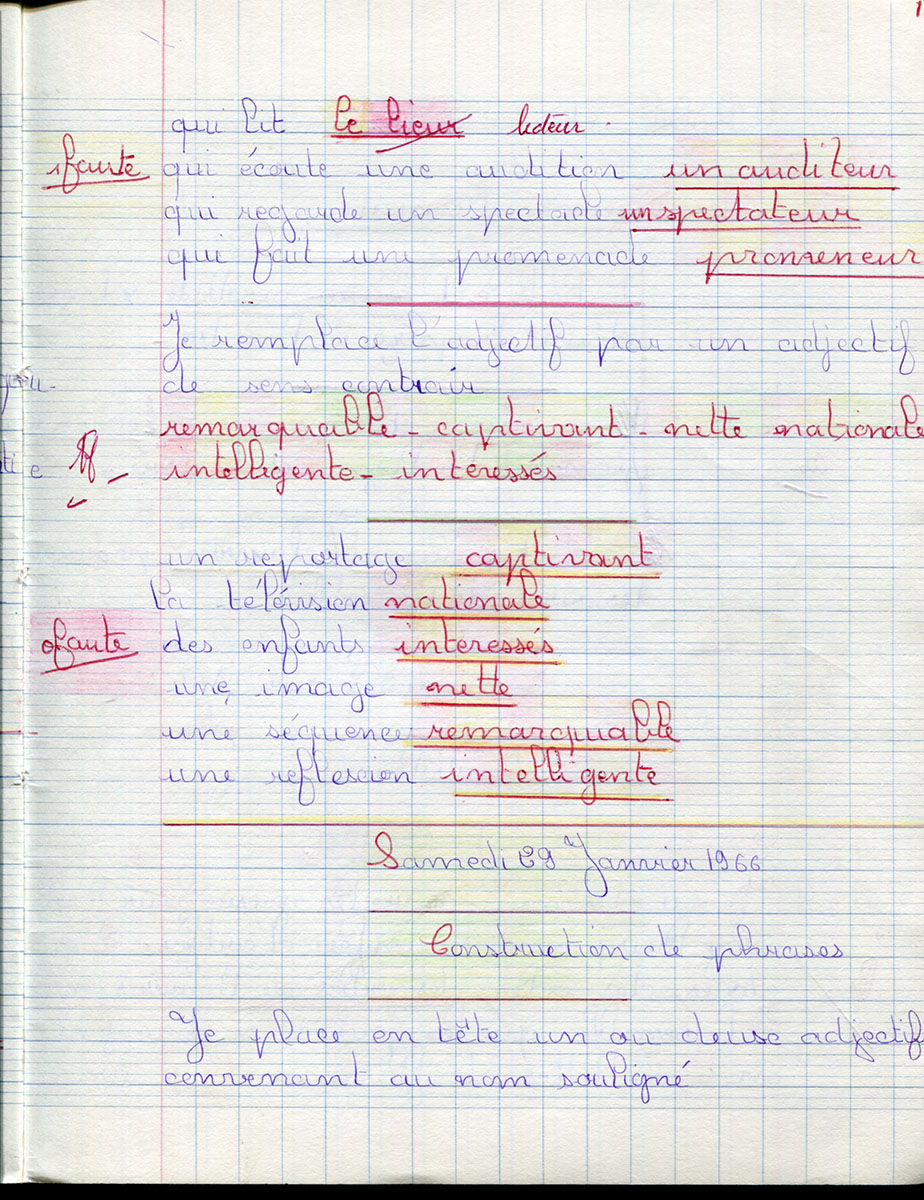 1
qui lit le lieur lecteur.
1faute qui écoute une audition un auditeur
qui regarde un spectacle un spectateur
qui fait une promenade promeneur
Je remplace l'adjectif par un adjectif
de sens contrair
remarquable - captivant - nette nationale
intelligente - interessés
un reportage captivant
la télévision nationale
0faute des enfants interessés
une image nette
une séquence remarquable
une reflescion intelligente
Samedi 29 Janvier 1966
Construction de phrases
Je place en tête un ou deuse adjectif
convenant au nom souligné